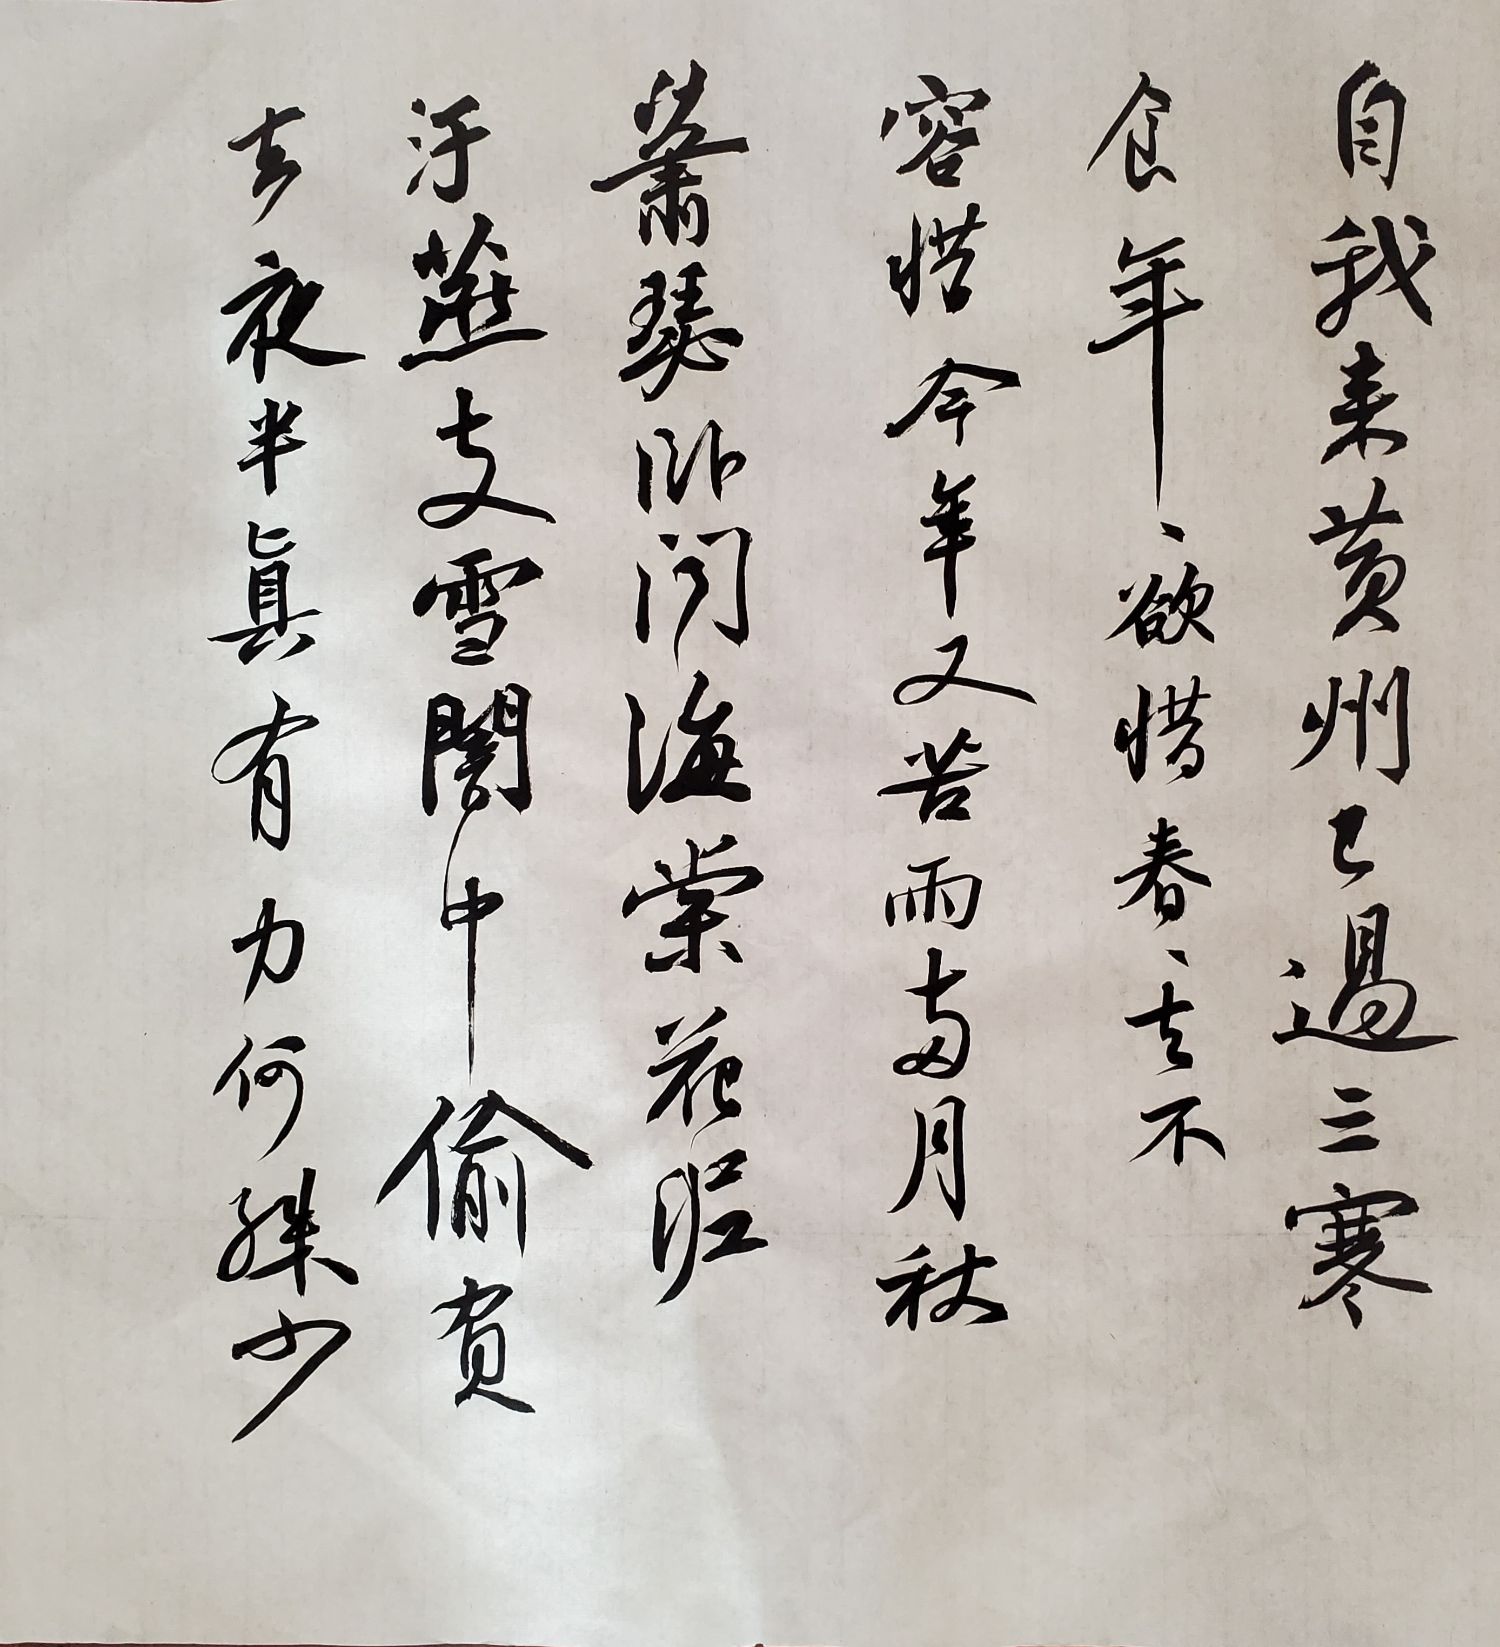 自我来黄州已過三寒
食年、欲惜春、去不
容惜今年又苦雨兩月秋
蕭瑟卧聞海棠花泥
汙燕支雪闇中偷負
去夜半真有力何殊少